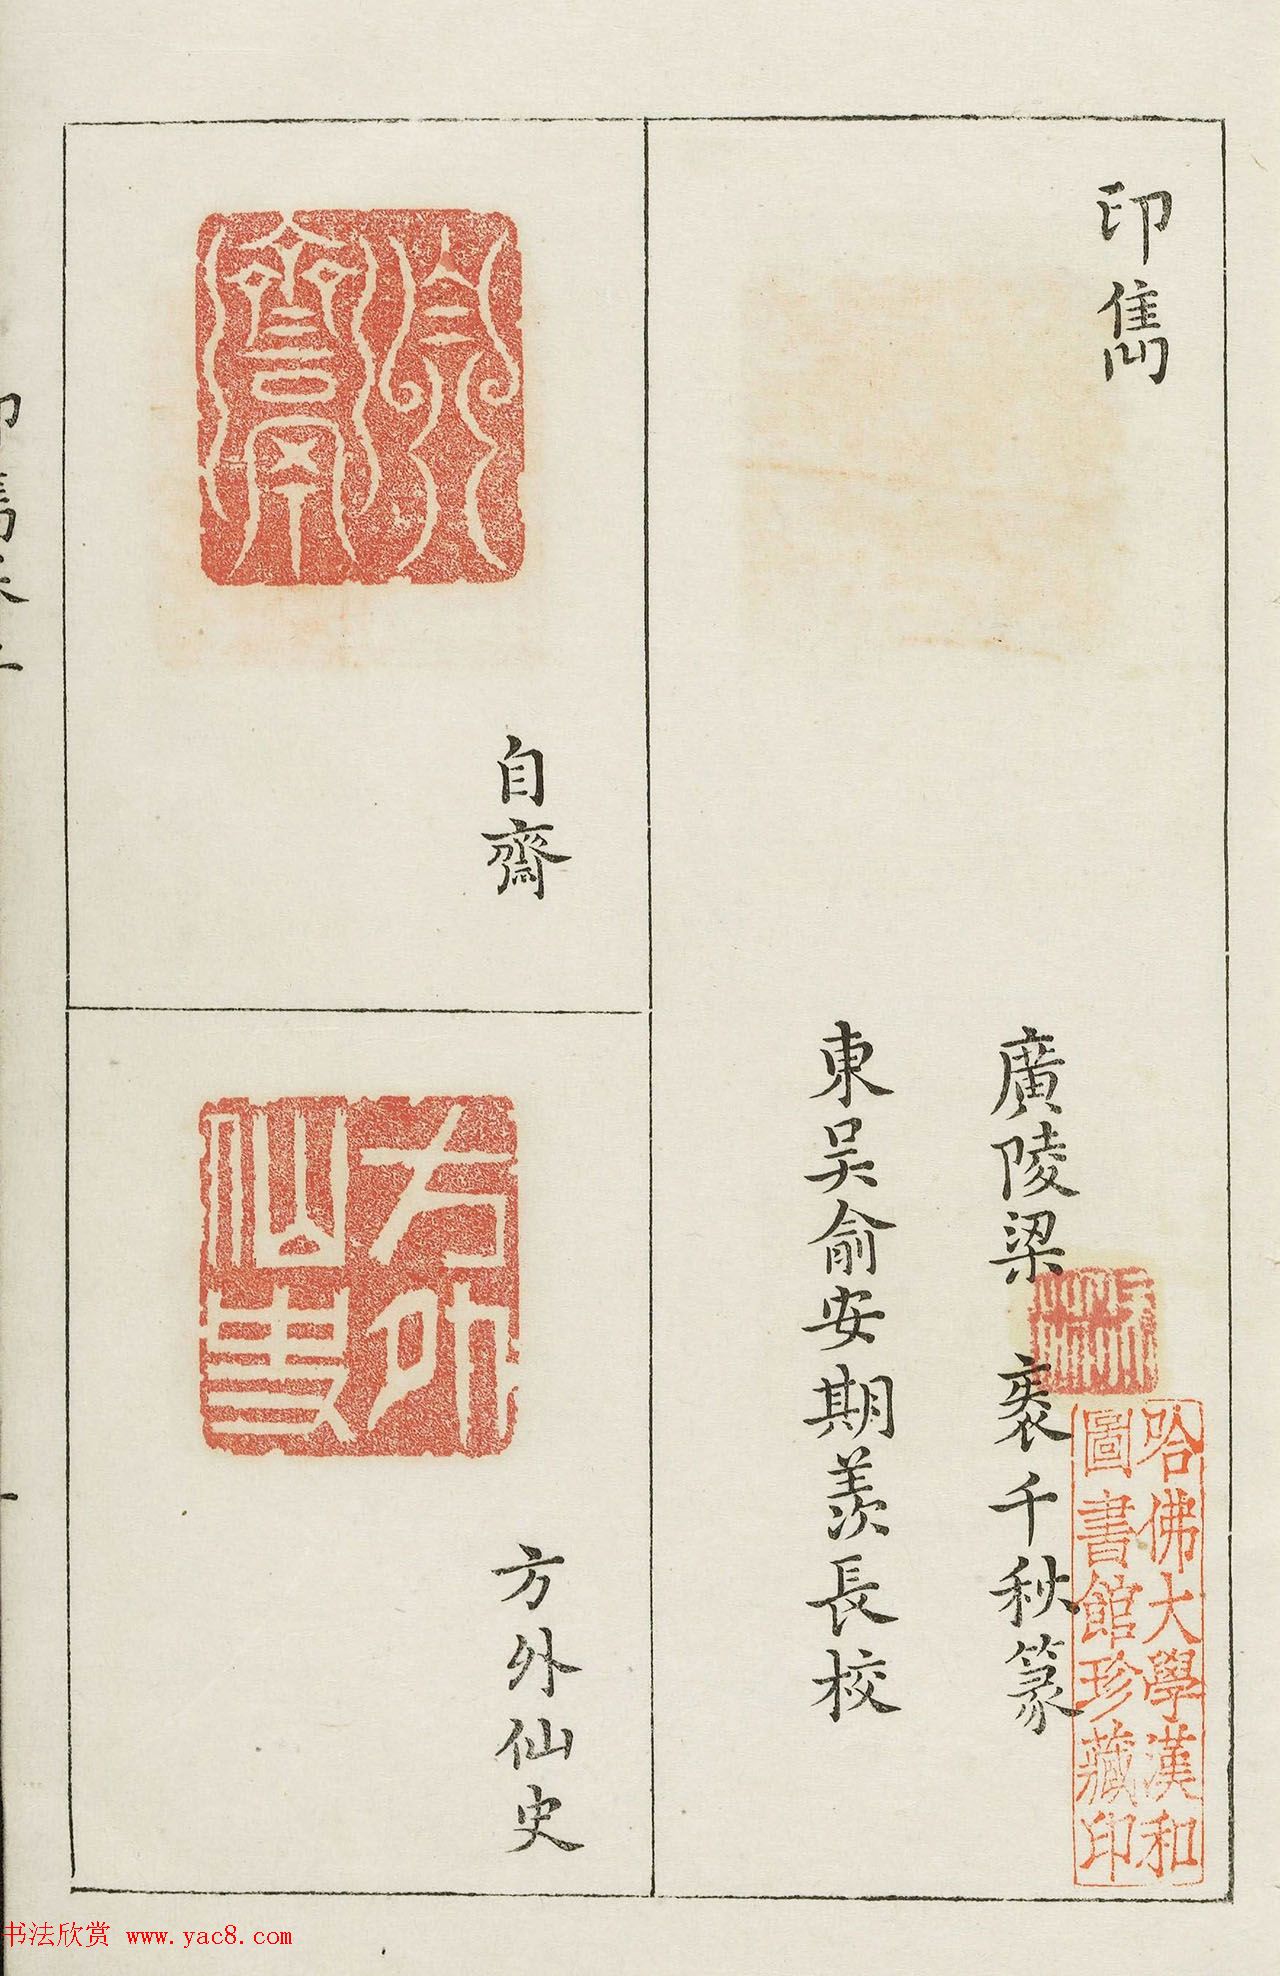 印雋
廣陵梁　袠千秋篆
東吳俞安期羨長校
哈佛大學漢和
圖書館珍藏印
自齋
方外仙史
方外
仙史
书法欣赏 www.yac8.com